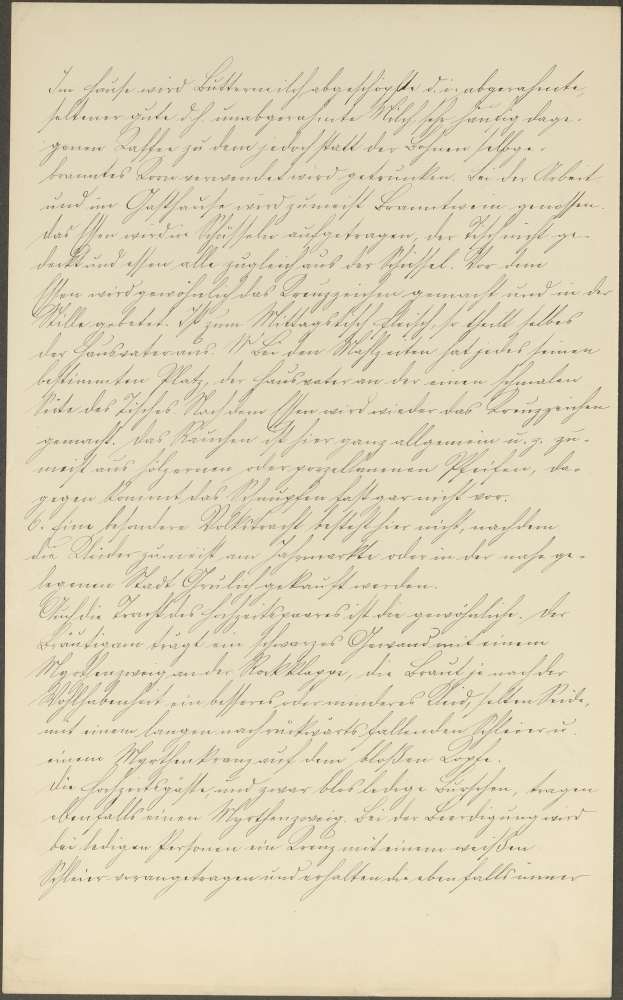 Im Hause wird Buttermilch abgeschöpfte d. i. abgerahmte,
seltener gute d. h. unabgerahmte Milch sehr häufig dage-
gen Kaffee zu dem jedoch statt der Bohnen selbge-
branntes Korn verwendet wird getrunken. Bei der Arbeit
und im Gasthause wird zumeist Branntwein genossen.
Das Essen wird in Schüsseln aufgetragen, der Tisch nicht ge-
deckt und essen alle zugleich aus der Schüssel. Vor dem
Essen wird gewöhnlich das Kreuzzeichen gemacht und in der
Stille gebetet. Ist zum Mittagstisch Fleisch, so theilt selbes
der Hausvater aus. Bei den Mahlzeiten hat jedes seinen
bestimmten Platz, der Hausvater an der einen schmalen
Seite des Tisches. Nach dem Essen wird wieder das Kreuzzeichen
gemacht. Das Rauchen ist hier ganz allgemein u. z. zu-
meist aus hölzernen oder porzellanenen Pfeifen, da-
gegen kommt das Schnupfen fast gar nicht vor.
6. Eine besondere Volkstracht besteht hier nicht, nachdem
die Kleider zumeist am Jahrmarkte oder in der nahe ge-
legenen Stadt Grulich gekauft werden.
Auch die Tracht des Hochzeitspaares ist die gewöhnliche. Der
Bräutigam trägt ein schwarzes Gewand mit einem
Myrthenzweig an der Rockklappe, die Braut je nach der
Wohlhabenheit ein besseres oder minderes Kleid, selten Seide,
mit einem langen nach rückwärts fallenden Schleier u.
einem Myrthenkranz auf dem bloßen Kopfe.
Die Hochzeitsgäste, und zwar blos ledige Burschen, tragen
ebenfalls einen Myrthenzweig. Bei der Beerdigung wird
bei ledigen Personen ein Kreuz mit einem weißen
Schleier vorangetragen und erhalten die ebenfalls immer